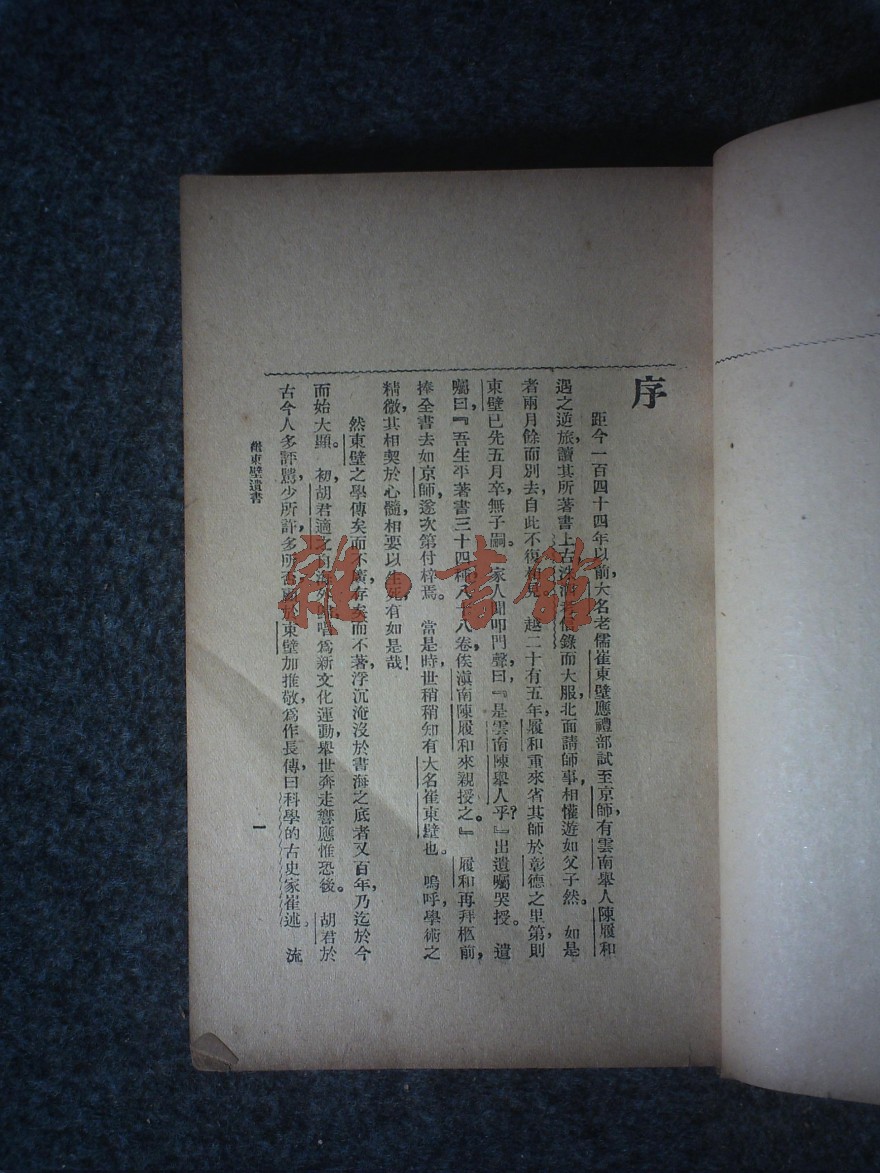 序
距今一百四十四年以前,大名老儒崔東壁應禮部試至京師,有雲南舉人陳履和
遇之逆旅,讀其所著書上古洙泗考信錄而大服,北面請師事,相懽遊如父子然。如是
者兩月餘而別去,自此不復相見。越二十有五年,履和重來省其師於彰德之里第,則
東壁已先五月卒,無子嗣。家人聞叩門聲,曰『是雲南陳舉人乎?』出遺囑哭授。遺
囑曰,『吾生平著書三十四種,八十八卷,俟滇南陳履和來親授之。』履和再拜柩前,
捧全書去如京師,遂次第付梓焉。當是時,世稍稍知有大名崔東壁也。嗚呼,學術之
精微,其相契於心髓,相要以生死,有如是哉!
然東壁之學傳矣而不廣,存矣而不著,浮沉淹沒於書海之底者又百年,乃迄於今
而始大顯。初,胡君適之自海外歸,唱為新文化運動,舉世奔走響應惟恐後。胡君於
古今人多評騭,少所許,多所否,顧於東壁加推敬,為作長傳,曰科學的古史家崔述。流
崔東壁遺書
一
雜·書館